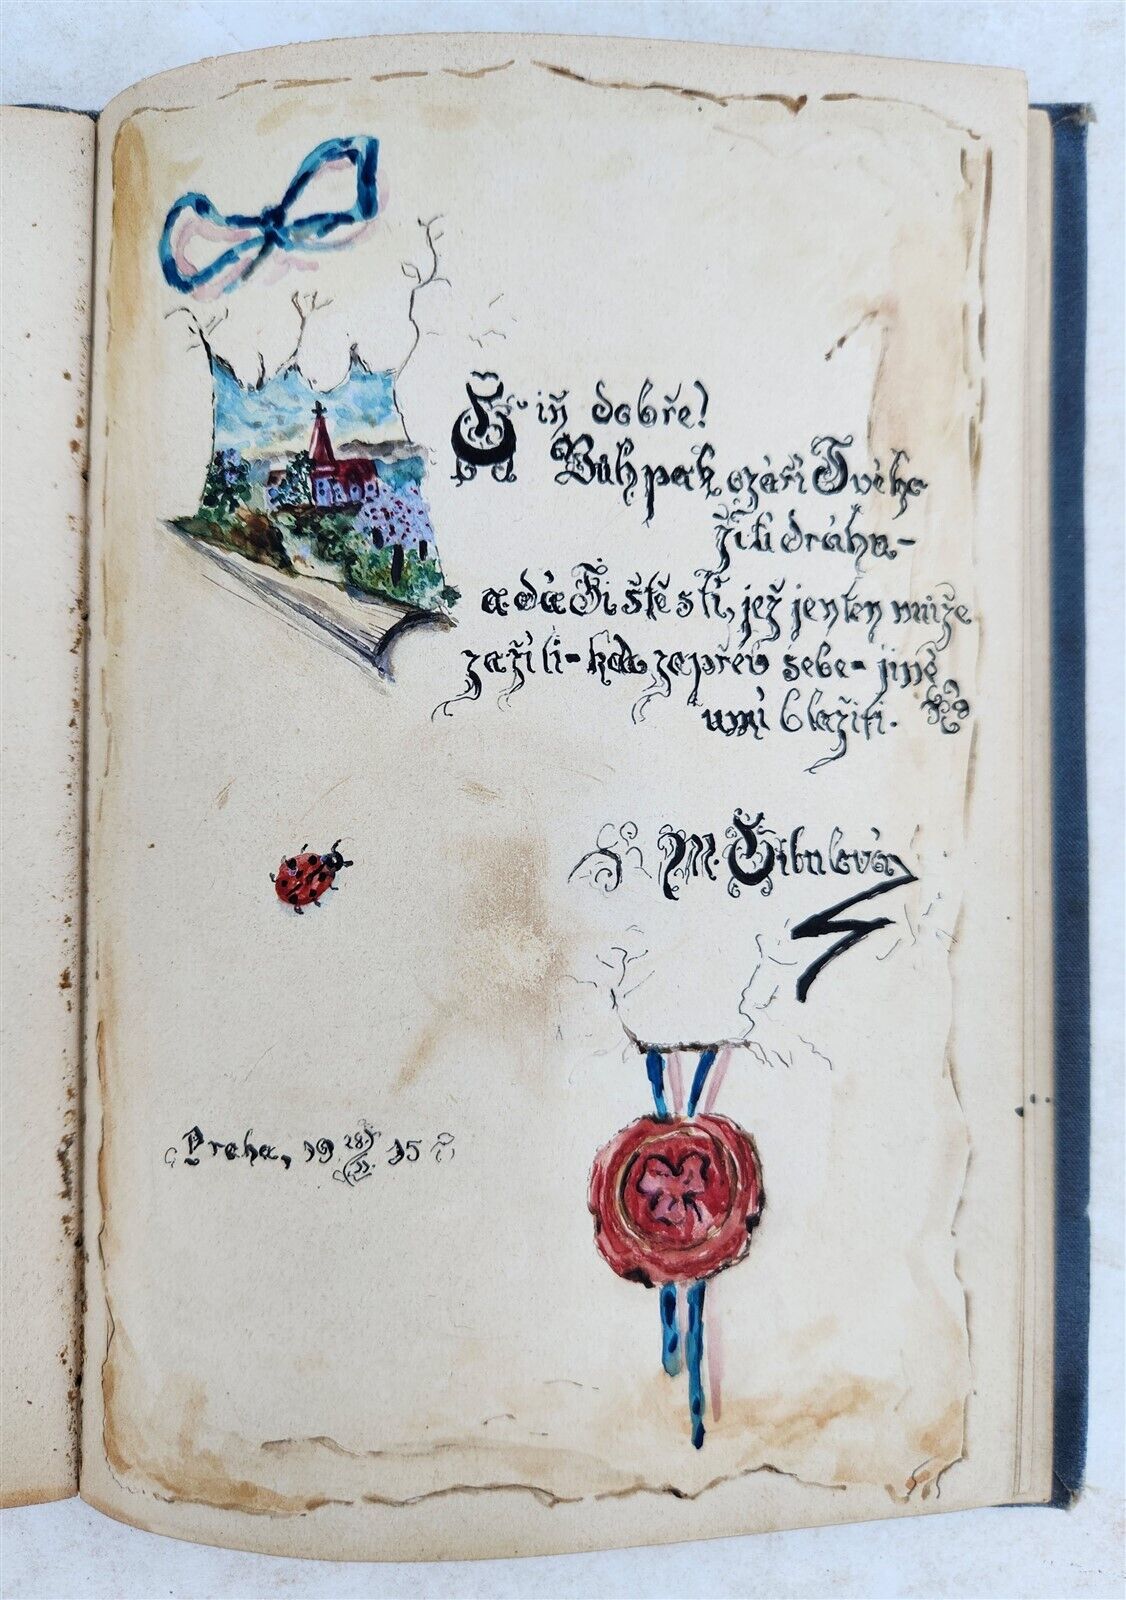 Čiň dobře!
Bůh pak ozáří Tvého
žití dráhu-
a dá Ti štěstí, jež jen ten může
zažíti- kdo zapřev sebe- jiné
umí blažiti.
M. Cibulová
Praha, 19 28/II. 15